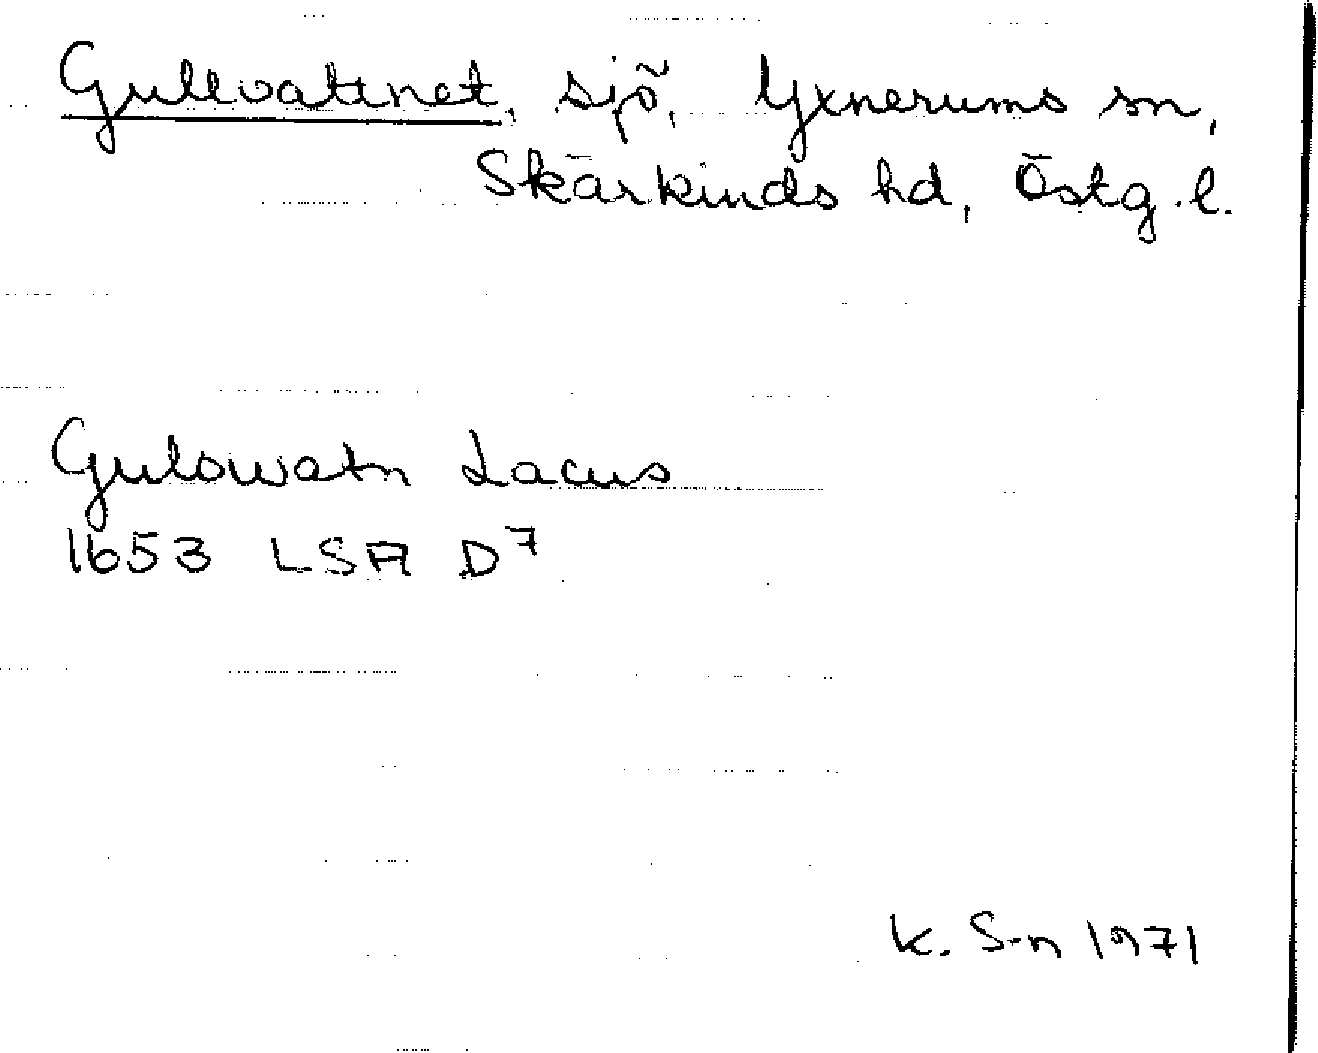 Gullvattnet, sjö, Yxnerums sn,
Skärkinds hd, Östg.l.
Gulowatn Lacus
1653 LSA D7
K. S-n 1971